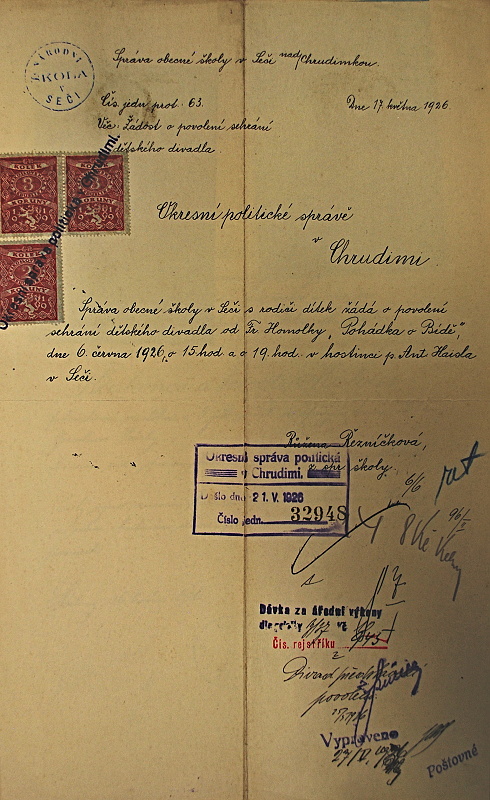 NÁRODNÍ
ŠKOLA
V
SEČI
Správa obecné školy v Seči nad/Chrudimkou.
Čís. jedn. prot. 63.
Dne 17. května 1926.
Věc: Žádost o povolení sehrání
dětského divadla.
KOLEK
KOLEK
KORUNY
KORUNY
KOLEK
KORUNY
Okresní správa politická v Chrudimi.
Okresní politické správě
v
Chrudimi.
Správa obecné školy v Seči s rodiči dítek žádá o povolení
sehrání dětského divadla od Fr. Homolky, "Pohádka o Bídě",
dne 6. června 1926, o 15 hod. a o 19. hod. v hostinci p. Ant. Haisla
v Seči.
Růžena Řezníčková,
školy.
Okresní správa politická
v Chrudimi.
Došlo dne 21. V. 1926
Číslo jedn. 32948
6/6
8 Kč kolky
Dávka za úřední výkony
dle položky
Čís. rejstříku
povolen
Vypraveno
Poštovné